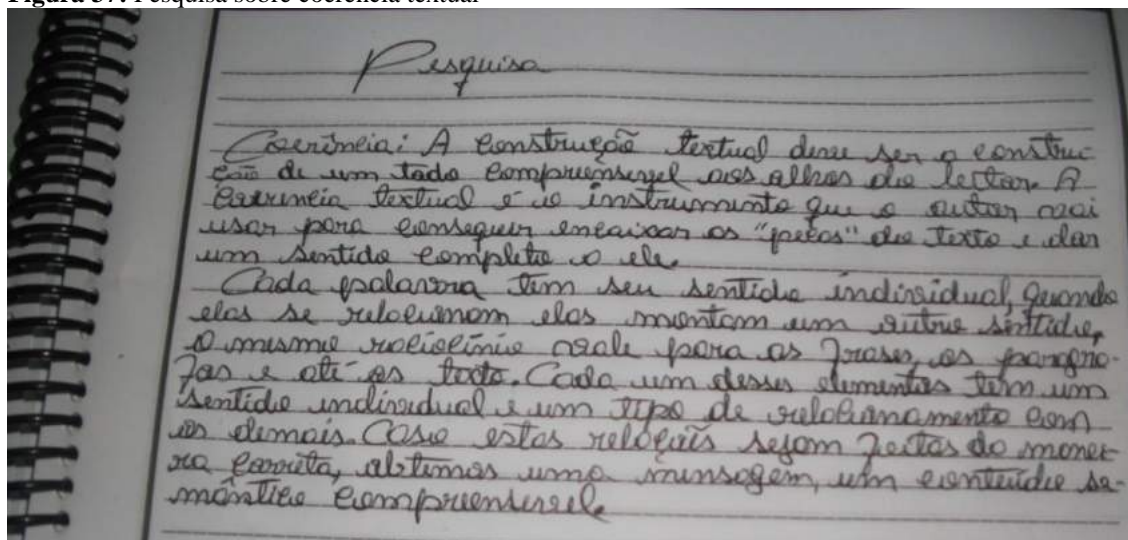 Figura 37: Pesquisa sobre coerência textual
Pesquisa
Coerência: A construção textual deve ser a construc
ção de um todo compreensível aos olhos do leitor. A
coerência textual é o instrumento que o autor vai
usar para conseguir encaixar as "peças" do texto e dar
um sentido completo a ele.
Cada palavra tem seu sentido individual, quando
elas se relacionam elas montam um outro sentido,
O mesmo raciocínio vale para as frases, os paragra-
fas e até os texto. Cada um desses elementos tem um
sentido individual e um tipo de relacionamento com
os demais. Caso estas relações sejam feitas da manei
ra correta, obtemos uma mensagem, um conteúdo se-
mântico compreensivel.